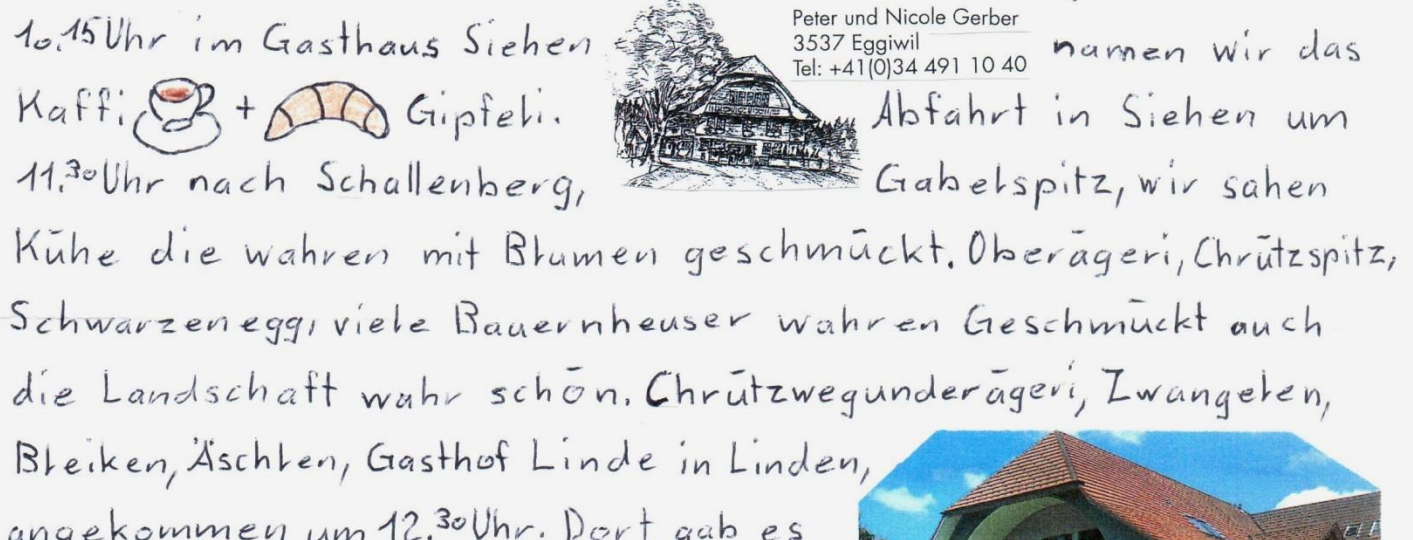 10.15 Uhr im Gasthaus Siehen
Peter und Nicole Gerber
3537 Eggiwil
Tel: +41(0)34 491 10 40
namen wir das
Kaffi + Gipfeli.
Abfahrt in Siehen um
11.30 Uhr nach Schallenberg,
Gabelspitz, wir sahen
Kühe die wahren mit Blumen geschmückt. Oberägeri, Chrützspitz,
Schwarzenegg, viele Bauernheuser wahren Geschmückt auch
die Landschaft wahr schön. Chrützwegunderägeri, Zwangelen,
Bleiken, Äschlen, Gasthof Linde in Linden,
angekommen um 12.30 Uhr. Dort gab es